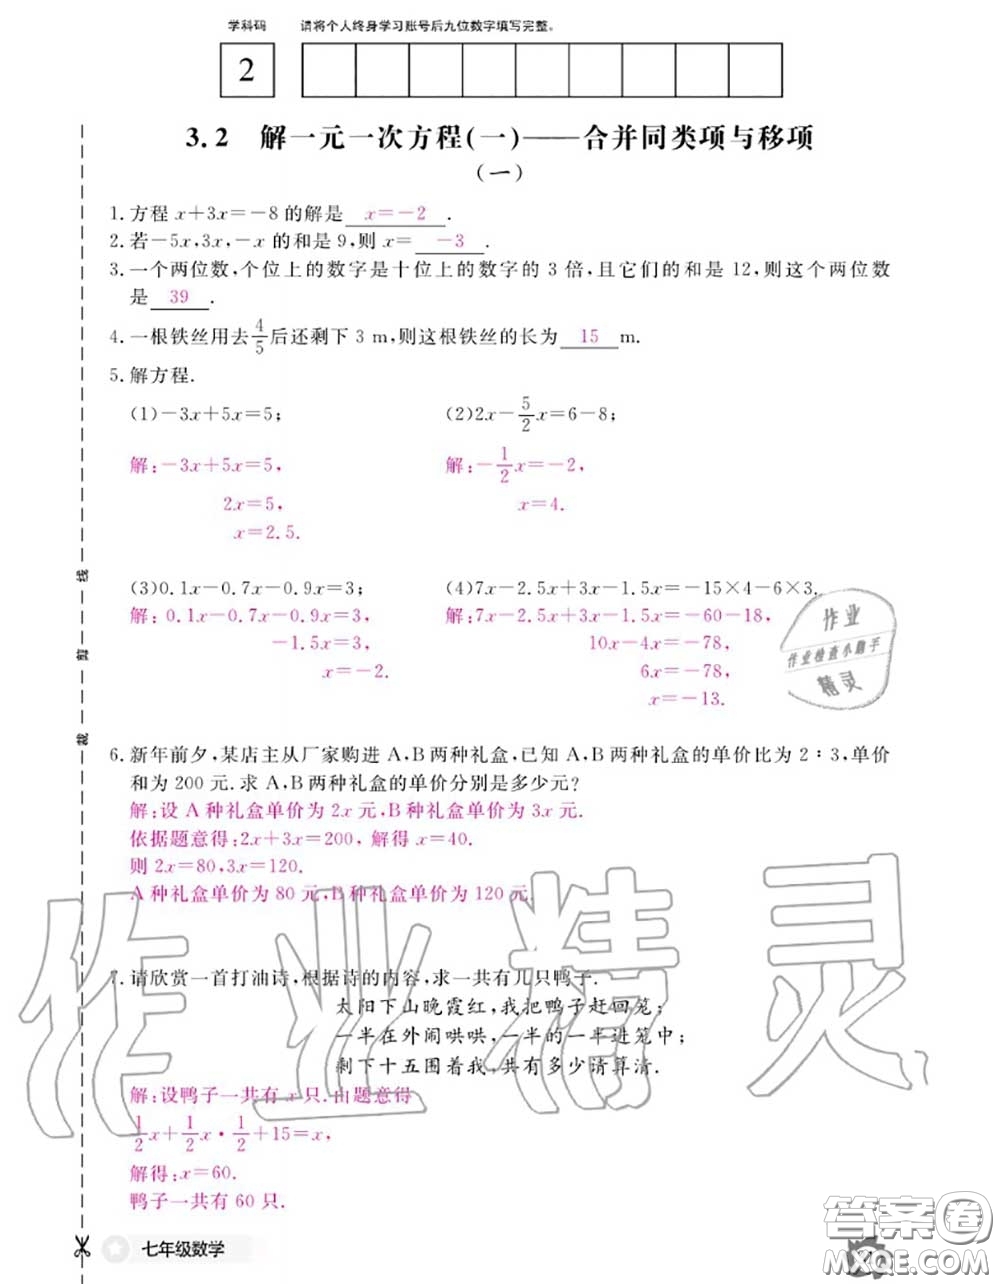 学科码 请将个人终身学习账号后九位数字填写完整。
2
3.2 解一元一次方程(一)——合并同类项与移项
(一)
1.方程 x+3x=-8 的解是 x=-2 .
2.若-5x,3x,-x 的和是 9,则 x= -3 .
3.一个两位数,个位上的数字是十位上的数字的 3 倍,且它们的和是 12,则这个两位数
是 39 .
4.一根铁丝用去4/5后还剩下 3 m,则这根铁丝的长为 15 m.
5.解方程.
(1)-3x+5x=5; (2)2x-5/2x=6-8;
解:-3x+5x=5, 解:-1/2x=-2,
2x=5, x=4.
x=2.5.
(3)0.1x-0.7x-0.9x=3; (4)7x-2.5x+3x-1.5x=-15×4-6×3.
解:0.1x-0.7x-0.9x=3, 解:7x-2.5x+3x-1.5x=-60-18,
-1.5x=3, 10x-4x=-78,
x=-2. 6x=-78,
x=-13.
6.新年前夕,某店主从厂家购进 A,B 两种礼盒,已知 A,B 两种礼盒的单价比为 2∶3,单价
和为 200 元.求 A,B 两种礼盒的单价分别是多少元?
解:设 A 种礼盒单价为 2x 元,B 种礼盒单价为 3x 元.
依据题意得:2x+3x=200,解得 x=40.
则 2x=80,3x=120.
A 种礼盒单价为 80 元,B 种礼盒单价为 120 元.
7.请欣赏一首打油诗,根据诗的内容,求一共有几只鸭子.
太阳下山晚霞红,我把鸭子赶回笼;
一半在外闹哄哄,一半的一半进笼中;
剩下十五围着我,共有多少请算清.
解:设鸭子一共有 x 只.由题意得
1/2x+1/2x·1/2+15=x,
解得:x=60.
鸭子一共有 60 只.
裁 剪 线
七年级数学
作业
作业检查小助手
精灵
作业精灵
答案卷